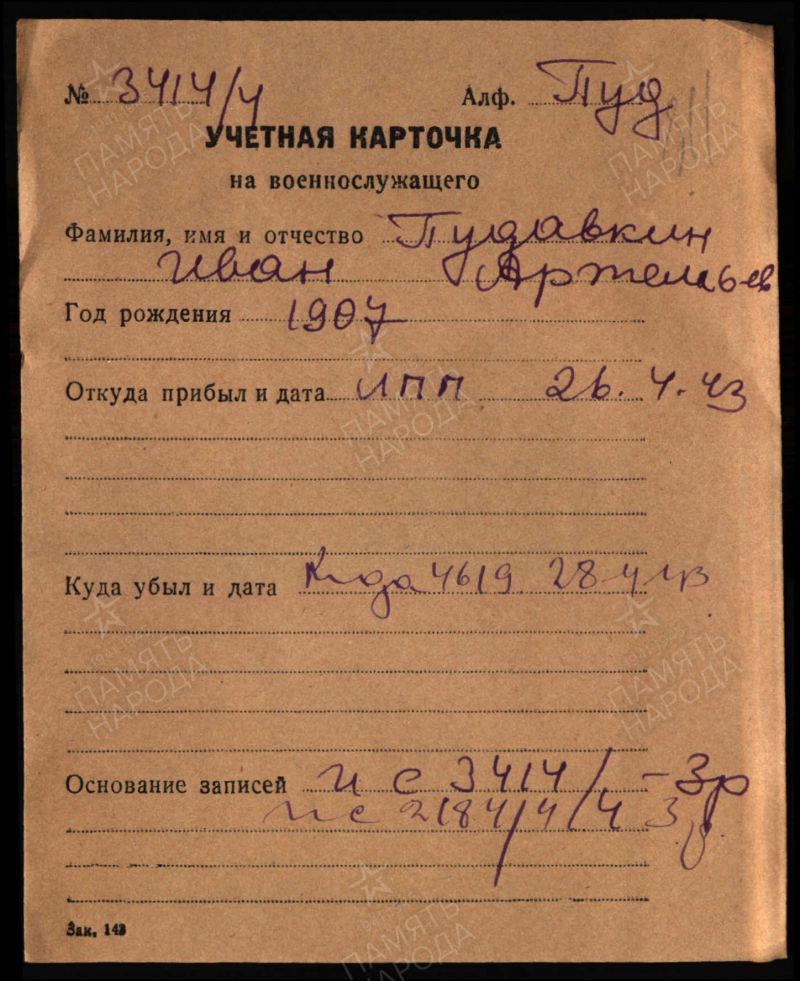 № 3414/4 Алф. Пуд
УЧЕТНАЯ КАРТОЧКА
на военнослужащего
Фамилия, имя и отчество Пудавкин
Иван Артемьев
Год рождения 1907
Откуда прибыл и дата ИПП 26.4.43
Куда убыл и дата 4619 28 4 43
Основание записей и с 3414/ - 3р
и с 2184/4/4 3р
Зак. 143
ПАМЯТЬ НАРОДА
ПАМЯТЬ НАРОДА
ПАМЯТЬ НАРОДА
ПАМЯТЬ НАРОДА
ПАМЯТЬ НАРОДА
ПАМЯТЬ НАРОДА